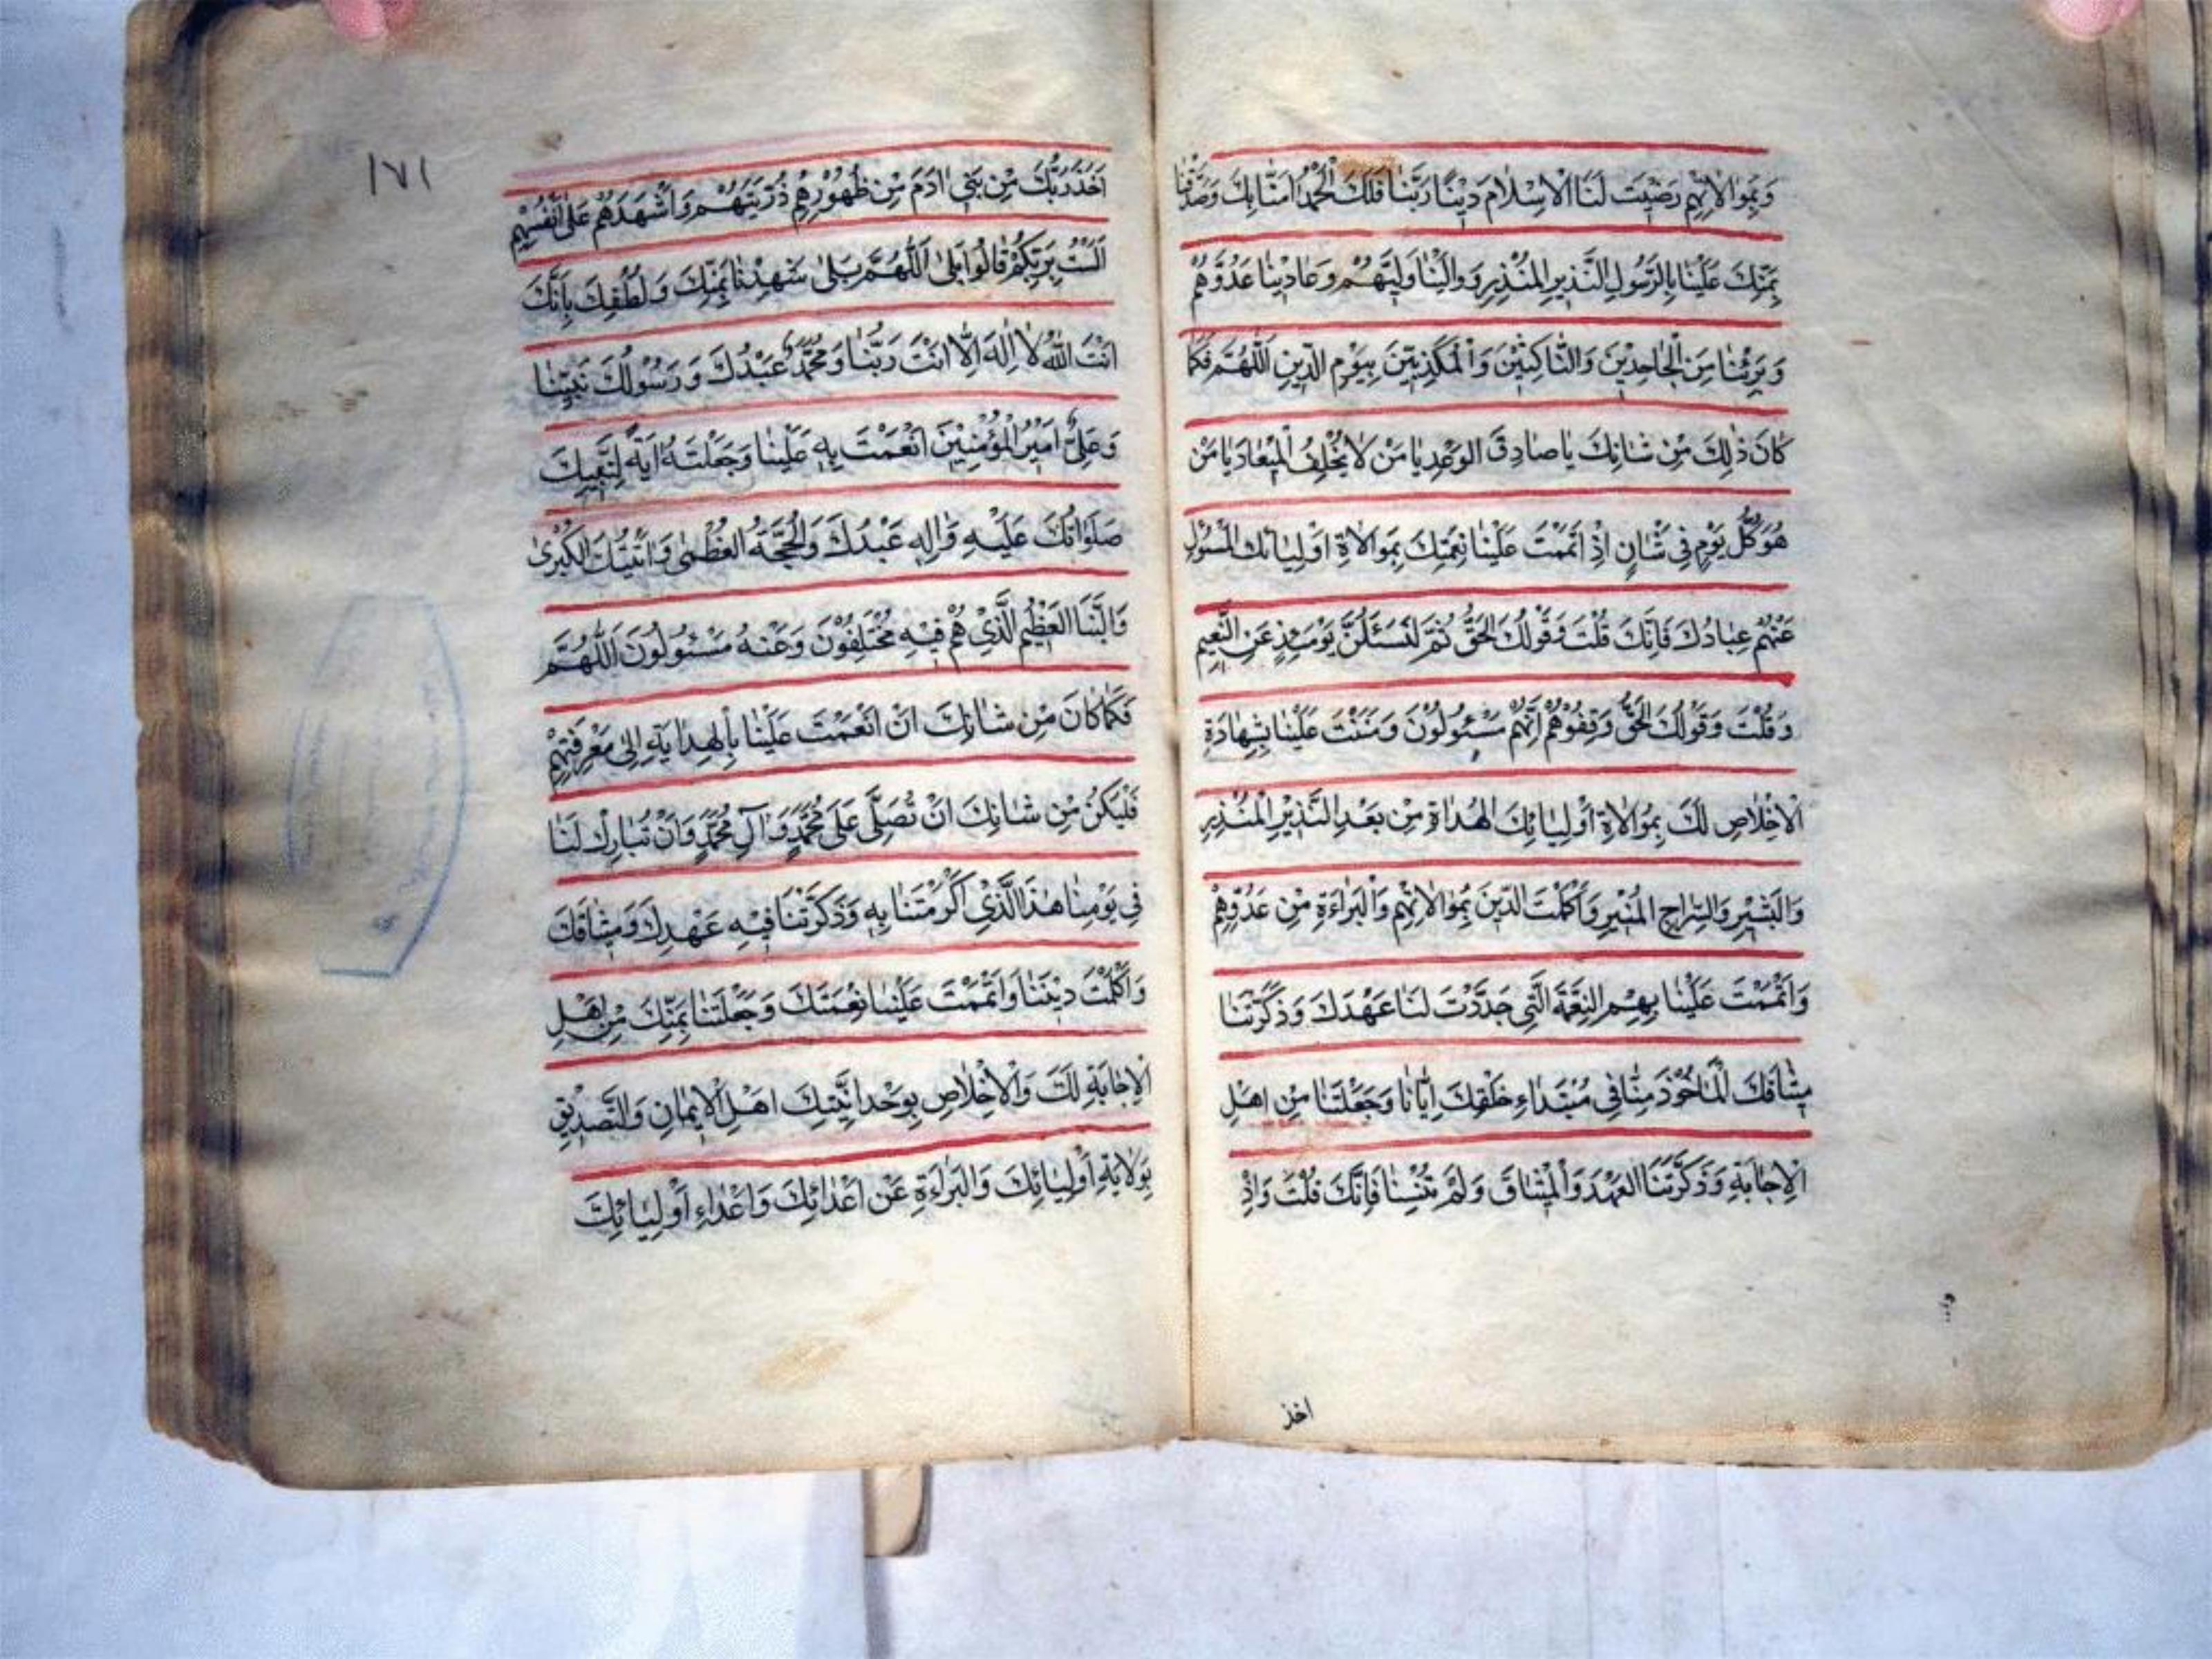 وَبِمُوالاتِهِم رَضِيْتَ لَنَا الْاِسْلامَ دِيْنًا رَبَّنا فَلَكَ الْحَمْدُ امَنّا بِكَ وَصَدَّقْنا
بِمَنِّكَ عَلَيْنا بِالرَّسُولِ النَّذِيرِ الْمُنْذِرِ وَوالَيْنا وَلِيَّهُمْ وَعادَيْنا عَدُوَّهُمْ
وَبَرِئْنا مِنَ الْجاحِدِيْنَ وَالنّاكِثِيْنَ وَالْمُكَذِّبِيْنَ بِيَوْمِ الدِّينِ اللّهُمَّ فَكَما
كانَ ذلِكَ مِنْ شانِكَ يا صادِقَ الْوَعْدِ يا مَنْ لا يُخْلِفُ الْمِيْعادَ يا مَنْ
هُوَ كُلَّ يَوْمٍ فِي شَانٍ اِذْ اَتْمَمْتَ عَلَيْنا نِعْمَتَكَ بِمُوالاةِ اَوْلِيائِكَ الْمَسْئُولِ
عَنْهُمْ عِبادُكَ فَاِنَّكَ قُلْتَ وَقَوْلُكَ الْحَقُّ ثُمَّ لَتُسْئَلُنَّ يَوْمَئِذٍ عَنِ النَّعِيْمِ
وَقُلْتَ وَقَوْلُكَ الْحَقُّ وَقِفُوهُمْ اِنَّهُمْ مَسْئُولُوْنَ وَمَنَنْتَ عَلَيْنا بِشَهادَةِ
الْاِخْلاصِ لَكَ بِمُوالاةِ اَوْلِيائِكَ الْهُداةِ مِنْ بَعْدِ النَّذِيْرِ الْمُنْذِرِ
وَالْبَشِيْرِ وَالسِّراجِ الْمُنِيْرِ وَاَكْمَلْتَ الدِّينَ بِمُوالاتِهِمْ وَالْبَراءَةِ مِنْ عَدُوِّهِمْ
وَاَتْمَمْتَ عَلَيْنا بِهِمِ النِّعْمَةَ الَّتِي جَدَّدْتَ لَنا عَهْدَكَ وَذَكَّرْتَنا
مِيْثاقَكَ الْمَاْخُوْذَ مِنّا فِي مُبْتَداءِ خَلْقِكَ اِيّانا وَجَعَلْتَنا مِنْ اَهْلِ
الْاِجابَةِ وَذَكَّرْتَنَا الْعَهْدَ وَالْمِيْثاقَ وَلَمْ تُنْسِنا فَاِنَّكَ قُلْتَ وَاِذْ
اخذ
١٧١
اَخَذَ رَبُّكَ مِنْ بَنِي ادَمَ مِنْ ظُهُوْرِهِمْ ذُرِّيَّتَهُمْ وَاَشْهَدَهُمْ عَلى اَنْفُسِهِمْ
اَلَسْتُ بِرَبِّكُمْ قالُوا بَلى اَللّهُمَّ بَلى شَهِدْنا بِمَنِّكَ وَلُطْفِكَ بِاَنَّكَ
اَنْتَ اللهُ لا اِلهَ اِلّا اَنْتَ رَبُّنا وَمُحَمَّدٌ عَبْدُكَ وَرَسُوْلُكَ نَبِيُّنا
وَعَلِيٌّ اَمِيْرُ الْمُؤْمِنِيْنَ اَنْعَمْتَ بِهِ عَلَيْنا وَجَعَلْتَهُ ايَةً لِنَبِيِّكَ
صَلَواتُكَ عَلَيْهِ وَالِهِ عَبْدُكَ وَالْحُجَّةُ الْعُظْمى وَايَتُكَ الْكُبْرى
وَالنَّبَا الْعَظِيْمِ الَّذِيْ هُمْ فِيْهِ مُخْتَلِفُوْنَ وَعَنْهُ مَسْئُولُوْنَ اَللّهُمَّ
فَكَما كانَ مِنْ شانِكَ اَنْ اَنْعَمْتَ عَلَيْنا بِالْهِدايَةِ اِلى مَعْرِفَتِهِمْ
فَلْيَكُنْ مِنْ شانِكَ اَنْ تُصَلِّيَ عَلى مُحَمَّدٍ وَآلِ مُحَمَّدٍ وَاَنْ تُبارِكَ لَنا
فِي يَوْمِنا هذَا الَّذِيْ اَكْرَمْتَنا بِهِ وَذَكَّرْتَنا فِيْهِ عَهْدِكَ وَمِيْثاقَكَ
وَاَكْمَلْتَ دِيْنَنا وَاَتْمَمْتَ عَلَيْنا نِعْمَتَكَ وَجَعَلْتَنا بِمَنِّكَ مِنْ اَهْلِ
الْاِجابَةِ لَكَ وَالْاِخْلاصِ بِوَحْدانِيَّتِكَ اَهْلِ الْاِيْمانِ وَالتَّصْدِيْقِ
بِوِلايَةِ اَوْلِيائِكَ وَالْبَراءَةِ عَنْ اَعْدائِكَ وَاَعْداءِ اَوْلِيائِكَ